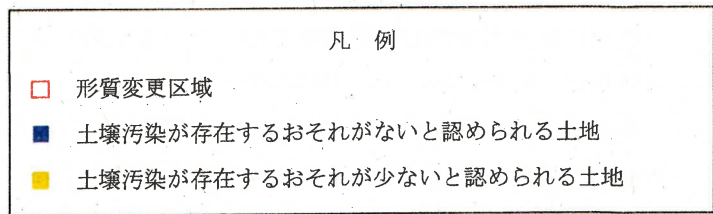 凡例
形質変更区域
土壌汚染が存在するおそれがないと認められる土地
土壌汚染が存在するおそれが少ないと認められる土地